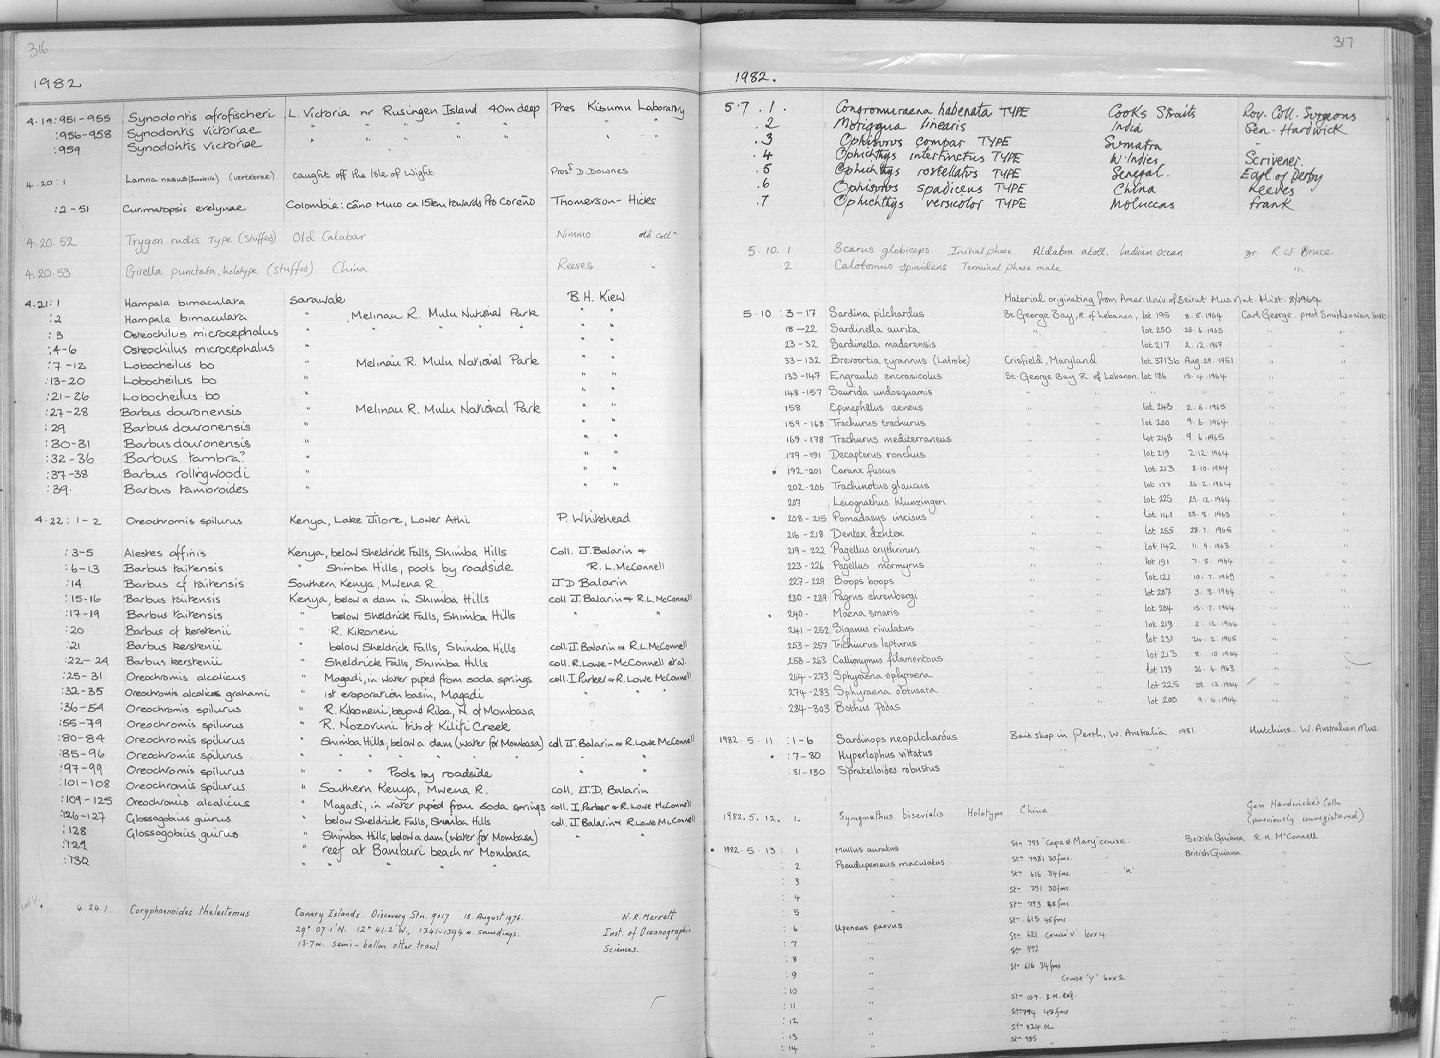 316
1982
4.19:951-955 Synodontis afrofischeri L. Victoria nr Rusingen Island 40m deep Pres Kisumu Laboratory
:956-958 Synodontis victoriae " " " " " " " "
:959 Synodontis victoriae " " " " " " " "
4.20:1 Lamna nasus (vertebrae) caught off the Isle of Wight. Prosf D. Downes
:2-51 Curimatopsis evelynae Colombia: caño Muco ca 15km towards Pto Coreño Thomerson-Hicks
4.20.52 Trygon rudis TYPE (stuffed) Old Calabar Nimmo old colln
4.20.53 Girella punctata, holotype (stuffed) China Reeves "
4.21:1 Hampala bimaculata Sarawak B.H. Kiew
:2 Hampala bimaculata " Melinau R. Mulu National Park " "
:3 Osteochilus microcephalus " " " " " " "
:4-6 Osteochilus microcephalus " " "
:7-12 Lobocheilus bo " Melinau R. Mulu National Park " "
:13-20 Lobocheilus bo " " "
:21-26 Lobocheilus bo " " "
:27-28 Barbus douronensis " Melinau R. Mulu National Park " "
:29 Barbus douronensis " " "
:30-31 Barbus douronensis " " "
:32-36 Barbus tambra? " " "
:37-38 Barbus rollingwoodi " " "
:39. Barbus tambroides " " "
4.22:1-2 Oreochromis spilurus Kenya, Lake Jilore, Lower Athi P. Whitehead
:3-5 Alestes affinis Kenya, below Sheldrick Falls, Shimba Hills coll. J. Balarin &
:6-13 Barbus taitensis " Shimba Hills, pools by roadside R.L. McConnell
:14 Barbus cf taitensis Southern Kenya, Mwena R. J.D Balarin
:15-16 Barbus taitensis Kenya, below a dam in Shimba Hills coll J. Balarin & R.L. McConnell
:17-19 Barbus taitensis " below Sheldrick Falls, Shimba Hills " "
:20 Barbus cf kerstenii " R. Kikoneni
:21 Barbus kerstenii " below Sheldrick Falls, Shimba Hills coll. J. Balarin & R.L. McConnell
:22-24 Barbus kerstenii " Sheldrick Falls, Shimba Hills coll. R. Lowe-McConnell et al.
:25-31 Oreochromis alcalicus " Magadi, in water piped from soda springs coll. I. Parker & R. Lowe McConnell
:32-35 Oreochromis alcalicus grahami " 1st evaporation basin, Magadi " "
:36-54 Oreochromis spilurus " R. Kikoneni, beyond Riba, N. of Mombasa ?
:55-79 Oreochromis spilurus " R. Nozovuni trib of Kilifi Creek
:80-84 Oreochromis spilurus " Shimba Hills, below a dam (water for Mombasa) coll J. Balarin & R. Lowe McConnell
:85-96 Oreochromis spilurus " " " " " " " "
:97-99 Oreochromis spilurus " " " Pools by roadside " "
:101-108 Oreochromis spilurus " Southern Kenya, Mwena R. coll. J.D. Balarin
:109-125 Oreochromis alcalicus " Magadi, in water piped from soda springs coll. I. Parker & R. Lowe McConnell
:126-127 Glossogobius giurus " below Sheldrick Falls, Shimba Hills coll. J. Balarin & R. Lowe McConnell
:128 Glossogobius giurus " Shimba Hills, below a dam (water for Mombasa) " "
:129 " reef at Bamburi beach nr Mombasa
:130 " " " "
4.24.1. Coryphaenoides thelestomus Canary Islands. Discovery Stn. 9017 18. August 1976. N.R. Merrett
29° 07.1'N. 12° 41.2'W., 1341-1394 m. soundings. Inst. of Oceanographic
13.7m. semi-balloon otter trawl Sciences.
317
1982.
5.7.1. Congromuraena habenata TYPE Cook's Straits Roy. Coll. Surgeons
.2 Moringua linearis India Gen. Hardwick
.3 Ophisurus compar TYPE Sumatra "
.4 Ophichthys intertinctus TYPE W. Indies Scrivener.
.5 Ophichthys rostellatus TYPE Senegal. Earl of Derby
.6 Ophisurus spadiceus TYPE China Reeves
.7 Ophichthys versicolor TYPE Moluccas Frank
5.10.1 Scarus globiceps Initial phase. Aldabra atoll, Indian Ocean Dr R.W. Bruce
2 Calotomus spinidens Terminal phase male "
Material originating from Amer. Univ of Beirut Mus Nat. Hist.
5.10:3-17 Sardina pilchardus St. George Bay, R. of Lebanon, lot 195 8.5.1964 Carl George. pres Smithsonian Inst
18-22 Sardinella aurita " " lot 250 26.6.1965 " "
23-32 Sardinella maderensis " " lot 217 2.12.1967 " "
33-132 Brevoortia tyrannus (Latrobe) Crisfield, Maryland lot 37136 Aug. 29. 1951 " "
133-147 Engraulis encrasicolus St. George Bay R. of Lebanon. lot 186 15.4.1964 " "
148-157 Saurida undosquamis " " " " " "
158 Epinephelus aeneus " " lot 243 2.6.1965 " "
159-168 Trachurus trachurus " " lot 200 9.6.1964 " "
169-178 Trachurus mediterraneus " " lot 243 9.6.1965 " "
179-191 Decapterus ronchus " " lot 219 2.12.1964 " "
192-201 Caranx fuscus " " lot 213 8.10.1964 " "
202-206 Trachinotus glaucus " " lot 177 26.2.1964 " "
207 Leiognathus klunzingeri " " lot 225 29.12.1964 " "
208-215 Pomadasys incisus " " lot 148 28.8.1963 " "
216-218 Dentex dentex " " lot 255 28.7.1965 " "
219-222 Pagellus erythrinus " " lot 142 11.9.1963 " "
223-226 Pagellus mormyrus " " lot 191 7.5.1964 " "
227-229 Boops boops " " lot 121 10.7.1963 " "
230-239 Pagrus ehrenbergi " " lot 207 3.8.1964 " "
240. Maena smaris " " lot 204 15.7.1964 " "
241-252 Siganus rivulatus " " lot 219 2.12.1964 " "
253-257 Trichiurus lepturus " " lot 231 24.2.1965 " "
258-263 Callionymus filamentosus " " lot 213 8.10.1964 " "
264-273 Sphyraena sphyraena " " lot 139 26.6.1963 " "
274-283 Sphyraena obtusata " " lot 225 29.12.1964 " "
284-303 Bothus podas " " lot 200 9.6.1964 " "
1982.5.11 :1-6 Sardinops neopilchardus Bait shop in Perth, W. Australia 1981 Hutchins. W. Australian Mus.
:7-30 Hyperlophus vittatus " " " "
:31-130 Spratelloides robustus " "
1982.5.12.1. Syngnathus biserialis Holotype China Gen Hardwicke's Colln (previously unregistered)
1982.5.13:1 Mullus auratus Stn 793 "Cape St Mary" cruise. British Guiana R.H. McConnell
2 Pseudupeneus maculatus Stn 7931 30fms. British Guiana "
3 " Stn 616 34fms.
4 " Stn 791 30fms.
5 " Stn 793 48fms
:6 Upeneus parvus Stn 615 45fms
:7 " Stn 621 Cruise 'V' box 4
:8 " Stn 992
:9 " Stn 616 34fms
Cruise 'Y' box 2
:10 "
:11 " Stn 109.
:12 " Stn 794 48fms
:13 " Stn 824
:14 " Stn 985